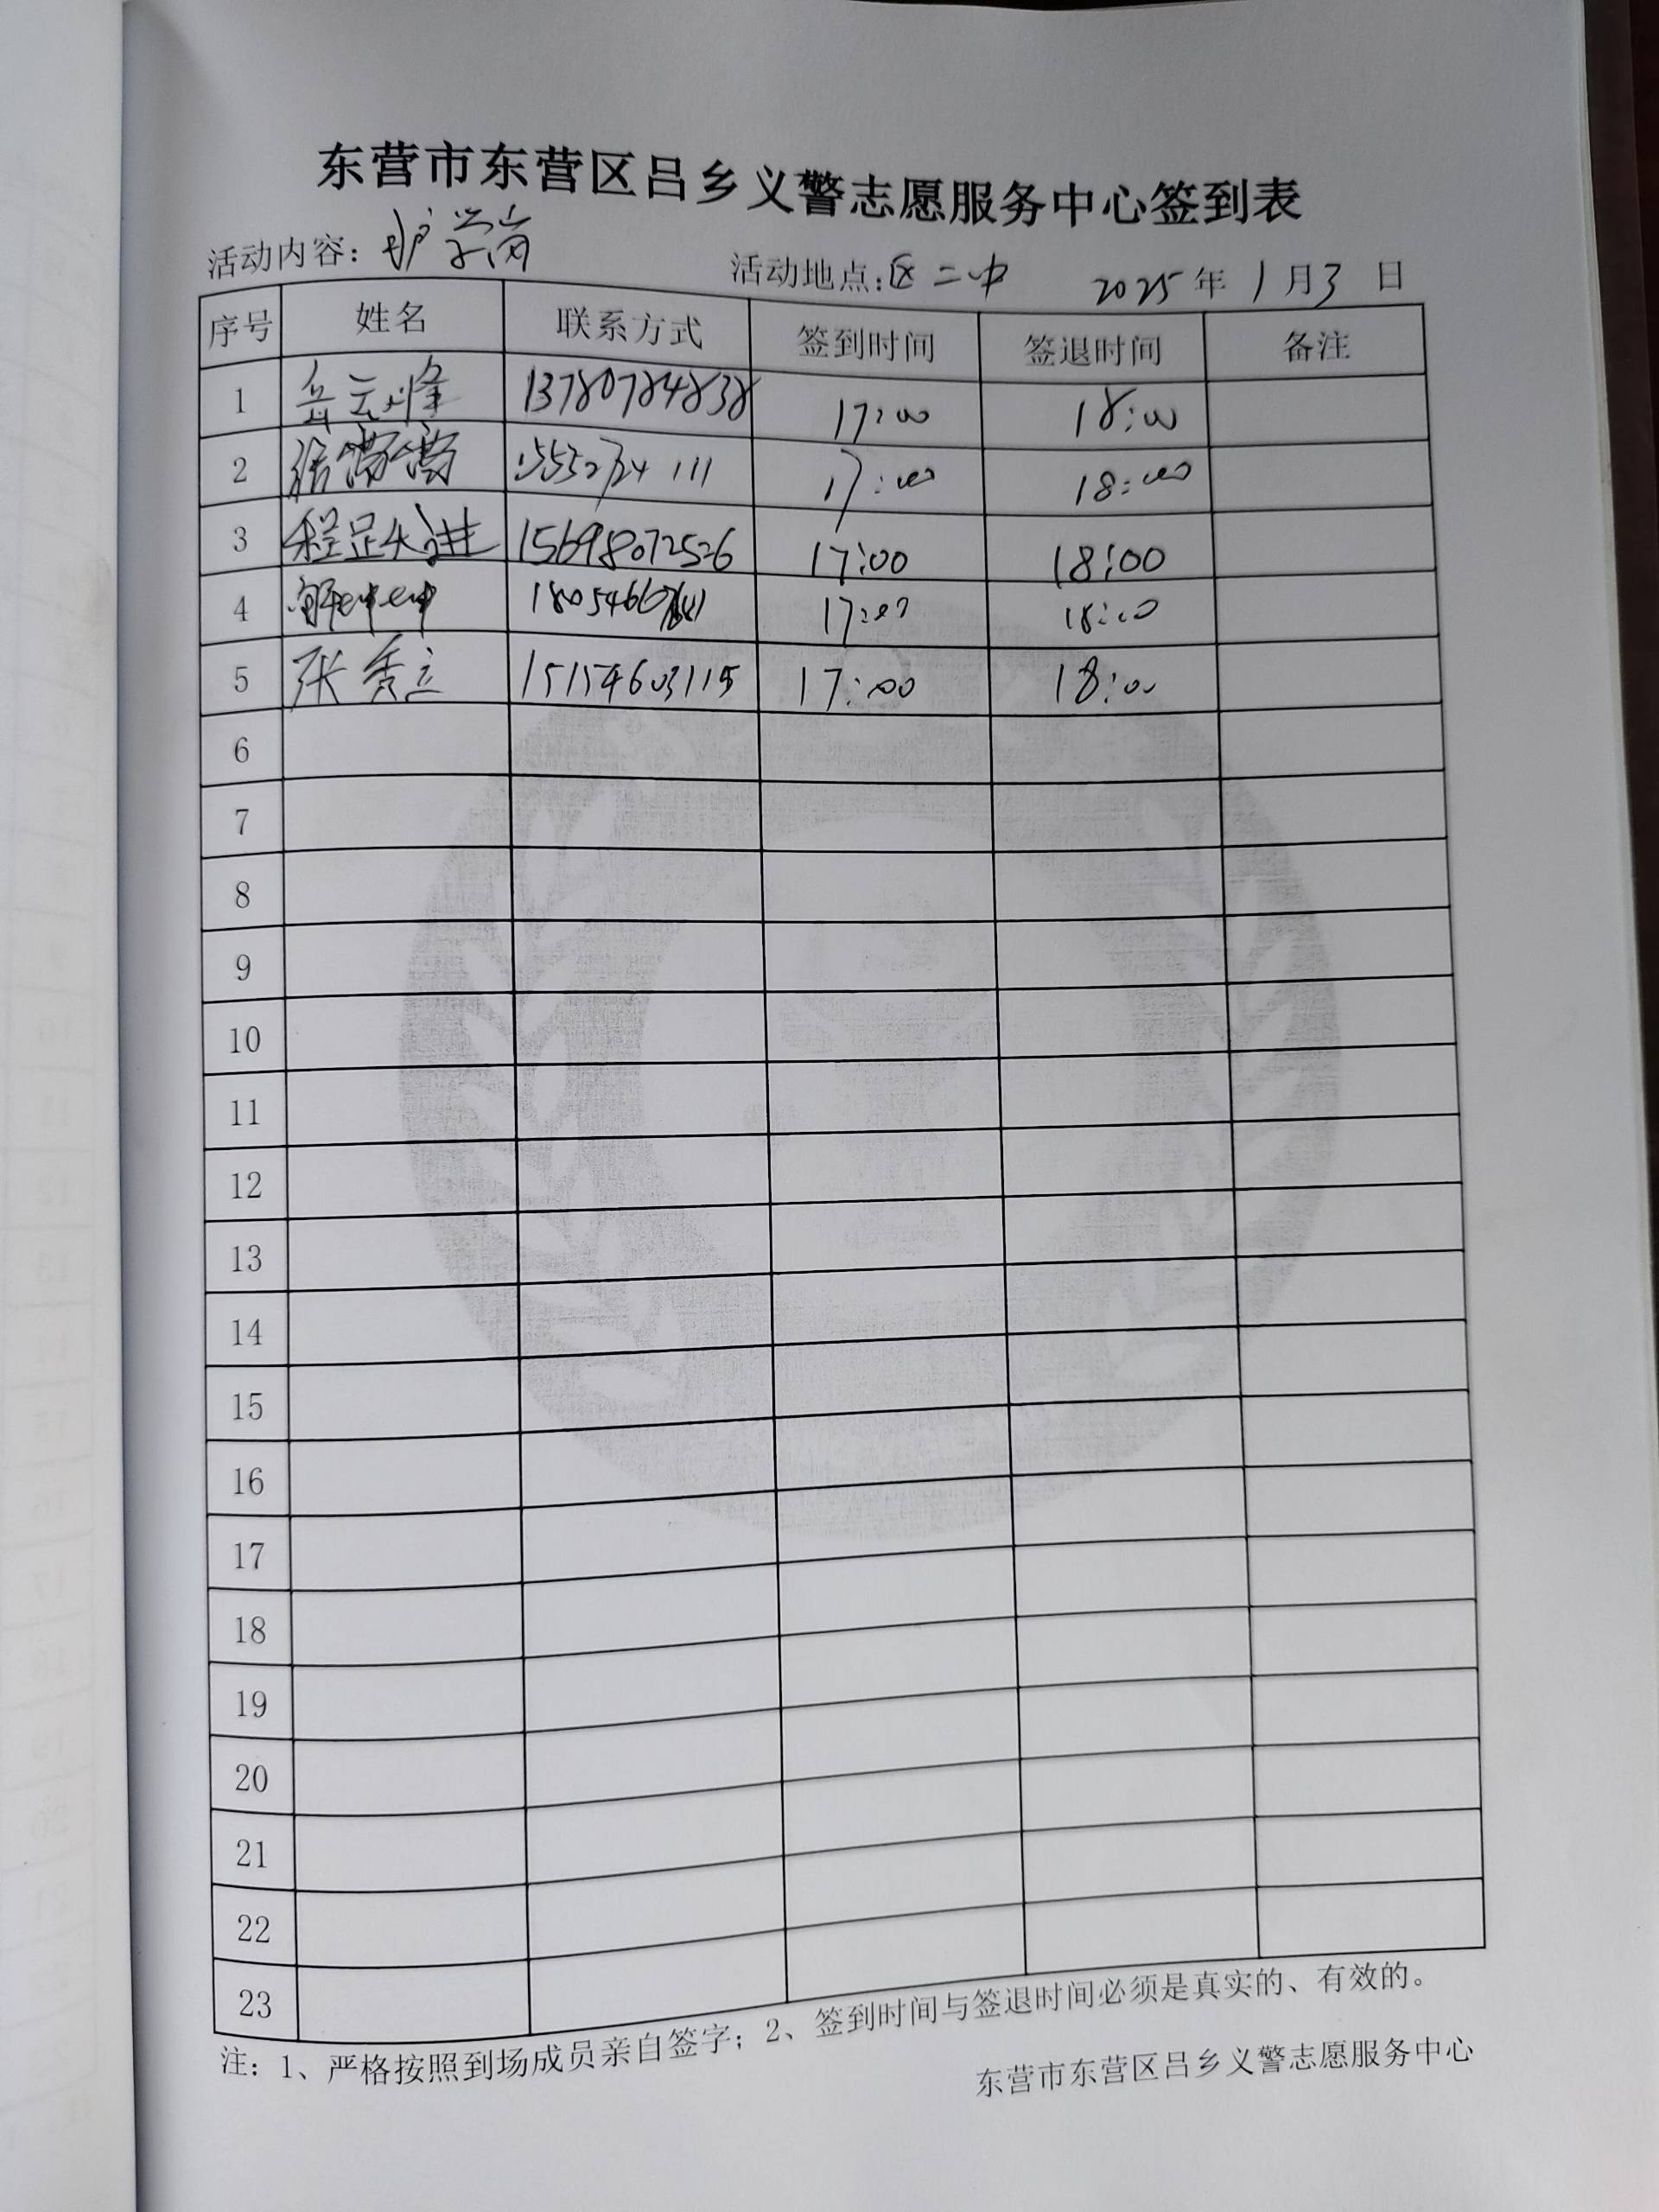 东营市东营区吕乡义警志愿服务中心签到表
活动内容：护学岗 活动地点：区二中 2025年1月3日
序号 姓名 联系方式 签到时间 签退时间 备注
1 岳云峰 13780784838 17:00 18:00
2 17:00 18:00
3 程显进 15698072526 17:00 18:00
4 解 17:00 18:00
5 张秀立 15154603115 17:00 18:00
6
7
8
9
10
11
12
13
14
15
16
17
18
19
20
21
22
23
注：1、严格按照到场成员亲自签字；2、签到时间与签退时间必须是真实的、有效的。
东营市东营区吕乡义警志愿服务中心